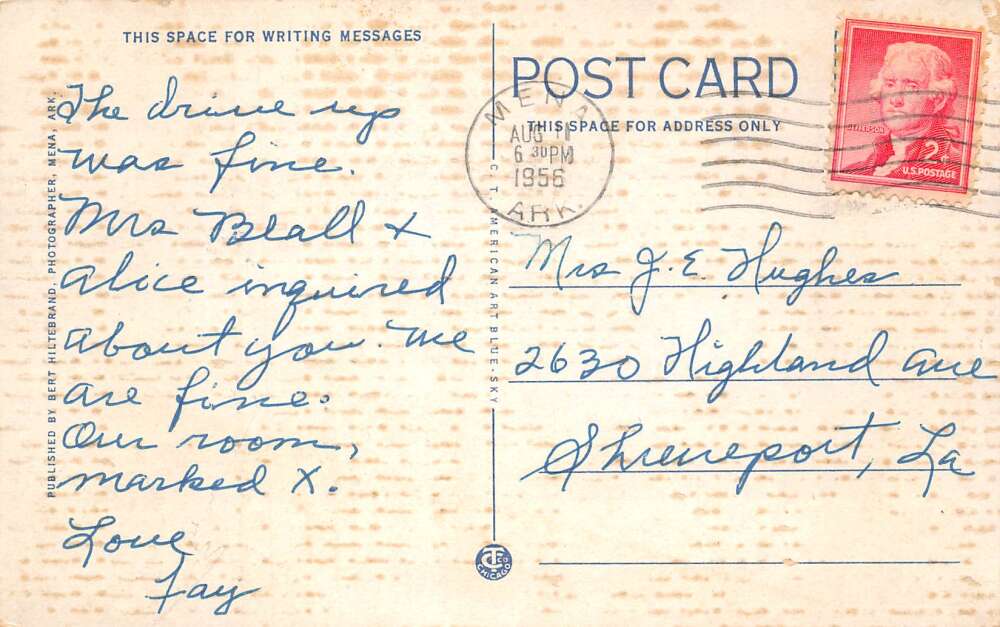 THIS SPACE FOR WRITING MESSAGES
The drive up
was fine.
Mrs Beall &
Alice inquired
about you. We
are fine.
Our room,
marked X.
Love
Fay
PUBLISHED BY BERT HILTEBRAND, PHOTOGRAPHER, MENA, ARK.
C. T. AMERICAN ART BLUE-SKY
POST CARD
THIS SPACE FOR ADDRESS ONLY
MENA
AUG 11
6 30 PM
1956
ARK.
JEFFERSON
2¢
U.S. POSTAGE
Mrs J. E. Hughes
2630 Highland Ave
Shreveport, La
CT CO
CHICAGO